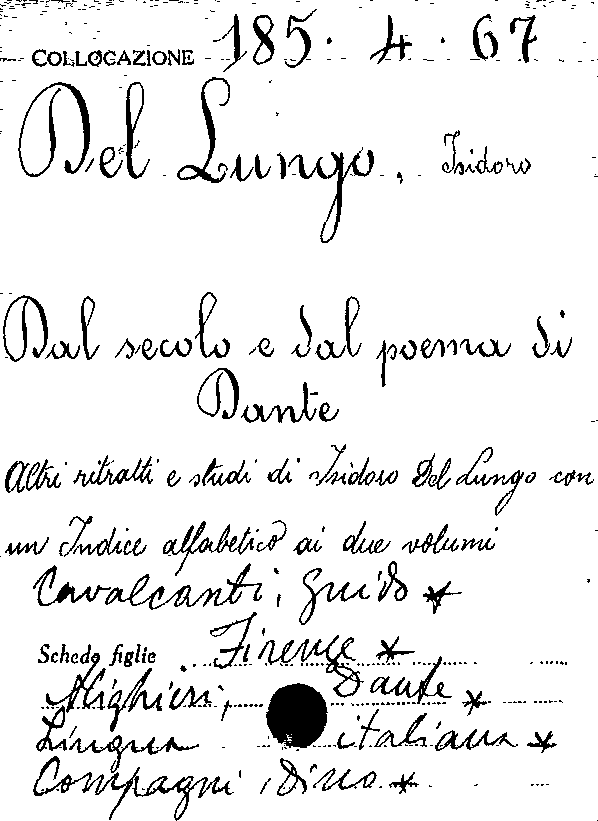 COLLOCAZIONE 185. 4. 67
Del Lungo, Isidoro
Dal secolo e dal poema di
Dante
Altri ritratti e studi di Isidoro Del Lungo con
un Indice alfabetico ai due volumi
Cavalcanti, Guido *
Schede figlie Firenze *
Alighieri, Dante *
Lingua italiana *
Compagni, Dino *